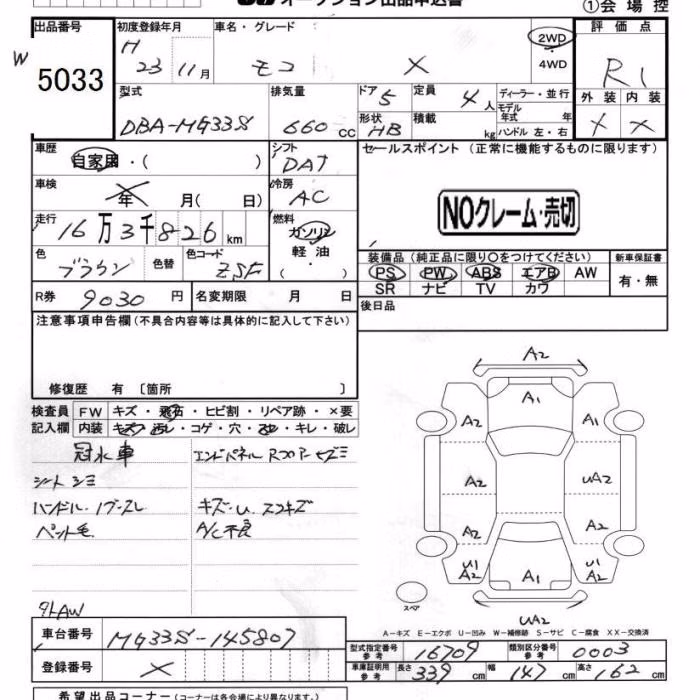 オークション出品申込書
①会場控
出品番号
W 5033
初度登録年月
H 23 11月
車名・グレード
モコ X
2WD
・4WD
評価点
R1
外装 内装
X X
型式
DBA-MG33S
排気量
660 cc
ドア 5
定員 4人
形状 HB
積載 kg
ディーラー・並行
モデル年式 年
ハンドル 左・右
車歴
自家用・( )
シフト
DAT
セールスポイント(正常に機能するものに限ります)
NOクレーム・売切
車検
年 月( 日)
冷房
AC
走行
16万3千826km
燃料
ガソリン
軽油
・( )
色
ブラウン
色替
色コード
ZSF
装備品(純正品に限り〇をつけてください)
PS PW ABS エアB AW
SR ナビ TV カワ
新車保証書
有・無
R券 9030円
名変期限 月 日
後日品
注意事項申告欄(不具合内容等は具体的に記入して下さい)
修復歴 有 〔箇所 〕
検査員記入欄
FW キズ・飛石・ヒビ割・リペア跡・×要
内装 キズ・汚レ・コゲ・穴・スレ・キレ・破レ
冠水車
シートシミ
ハンドル・
ペット毛
エンドパネル
キズ・U.
A/C不良
A2
A1
A2 A1
A2 UA2
A2 A2
U1 A2 A1 U1 A2
UA2
スペア
A-キズ E-エクボ U-凹み W-補修跡 S-サビ C-腐食 XX-交換済
車台番号 MG33S-145807
登録番号 X
型式指定番号 参考 16709
類別区分番号 参考 0003
車庫証明用 参考 長さ 339cm 幅 147cm 高さ 162cm
希望出品コーナー(コーナーは各会場により異なります。)